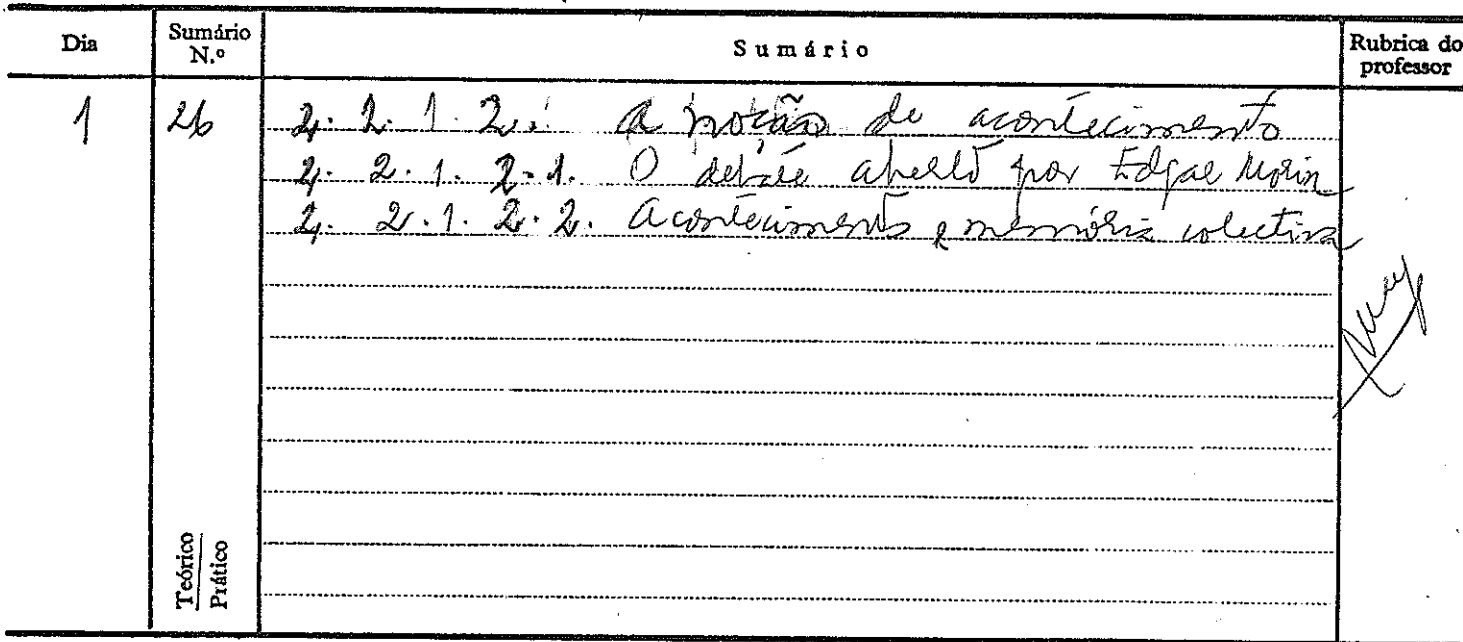 Dia
Sumário N.º
Sumário
Rubrica do professor
1
26
2. 2. 1. 2. : A noção de acontecimento
2. 2. 1. 2. 1. O debate aberto por Edgar Morin
2. 2. 1. 2. 2. Acontecimento e memória colectiva
Teórico
Prático